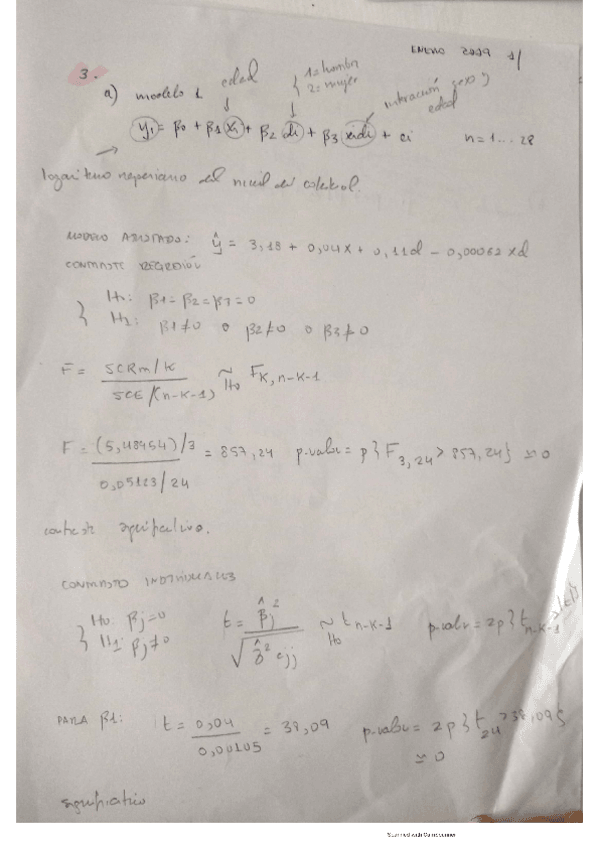 ENERO 2019 1/
3.
a) modelo 1 edad { 1=hombre 2=mujer interacción sexo y edad
yi = β0 + β1 xi + β2 di + β3 xidi + ei n=1...28
logaritmo neperiano del nivel del colesterol.
MODELO AJUSTADO: ŷ = 3,18 + 0,04x + 0,11d - 0,00062 xd
CONTRASTE REGRESIÓN
{ H0: β1=β2=β3=0
H1: β1≠0 o β2≠0 o β3≠0
F = SCRm/K / SCE/(n-K-1) ~H0 FK, n-K-1
F = (5,48454)/3 / 0,05123/24 = 857,24 p.valor = p{F3,24 > 857,24} ≃ 0
contraste significativo.
CONTRASTES INDIVIDUALES
{ H0: βj=0 t = β̂j / √σ̂² cjj ~H0 tn-K-1 p.valor = 2p{tn-K-1 > |t|}
H1: βj≠0
PARA β1: t = 0,04 / 0,00105 = 38,09 p.valor = 2p{t24 > 38,09}
≃ 0
significativo
Scanned with CamScanner